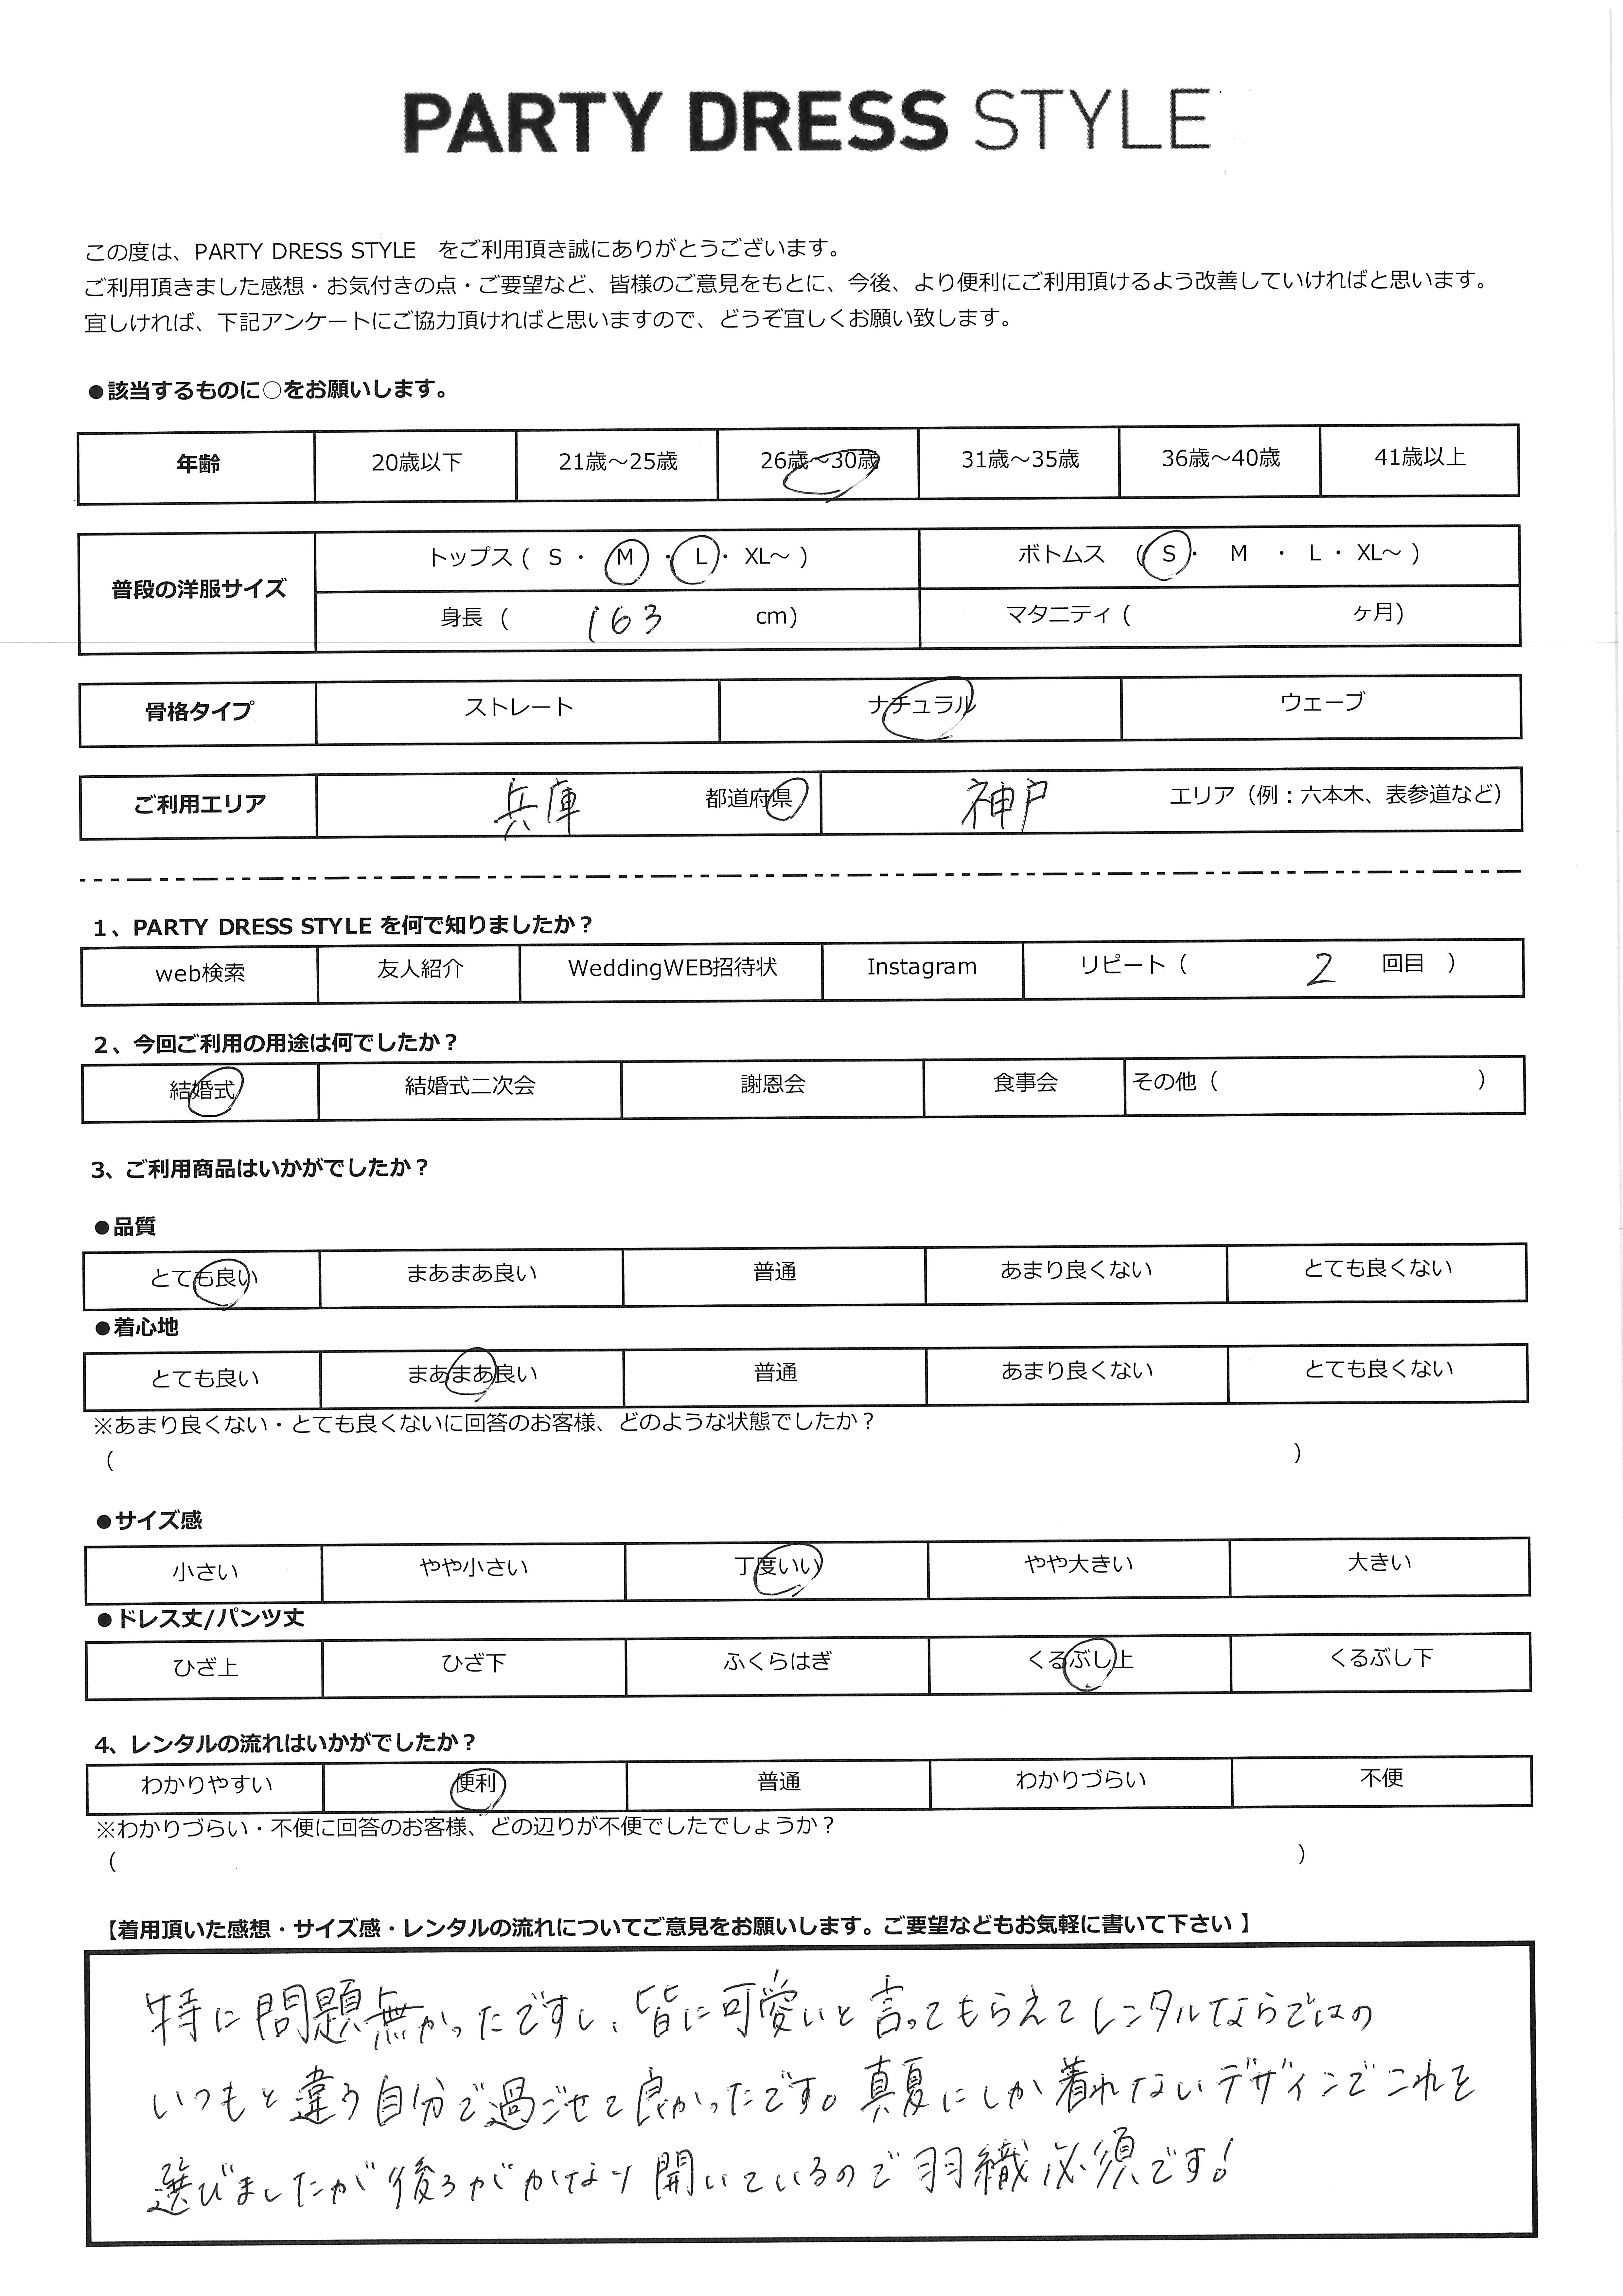 PARTY DRESS STYLE
この度は、PARTY DRESS STYLE　をご利用頂き誠にありがとうございます。
ご利用頂きました感想・お気付きの点・ご要望など、皆様のご意見をもとに、今後、より便利にご利用頂けるよう改善していければと思います。
宜しければ、下記アンケートにご協力頂ければと思いますので、どうぞ宜しくお願い致します。
●該当するものに○をお願いします。
年齢 20歳以下 21歳～25歳 26歳～30歳 31歳～35歳 36歳～40歳 41歳以上
普段の洋服サイズ トップス ( S ・ M ・ L ・ XL～ ) ボトムス ( S ・ M ・ L ・ XL～ )
身長 ( 163 cm) マタニティ ( ヶ月)
骨格タイプ ストレート ナチュラル ウェーブ
ご利用エリア 兵庫 都道府県 神戸 エリア（例：六本木、表参道など）
1、PARTY DRESS STYLE を何で知りましたか？
web検索 友人紹介 WeddingWEB招待状 Instagram リピート（ 2 回目 ）
2、今回ご利用の用途は何でしたか？
結婚式 結婚式二次会 謝恩会 食事会 その他（ ）
3、ご利用商品はいかがでしたか？
●品質
とても良い まあまあ良い 普通 あまり良くない とても良くない
●着心地
とても良い まあまあ良い 普通 あまり良くない とても良くない
※あまり良くない・とても良くないに回答のお客様、どのような状態でしたか？
（ ）
●サイズ感
小さい やや小さい 丁度いい やや大きい 大きい
●ドレス丈/パンツ丈
ひざ上 ひざ下 ふくらはぎ くるぶし上 くるぶし下
4、レンタルの流れはいかがでしたか？
わかりやすい 便利 普通 わかりづらい 不便
※わかりづらい・不便に回答のお客様、どの辺りが不便でしたでしょうか？
（ ）
【着用頂いた感想・サイズ感・レンタルの流れについてご意見をお願いします。ご要望などもお気軽に書いて下さい 】
特に問題無かったですし、皆に可愛いと言ってもらえてレンタルならではの
いつもと違う自分で過ごせて良かったです。真夏にしか着れないデザインでこれを
選びましたが後ろがかなり開いているので羽織必須です！